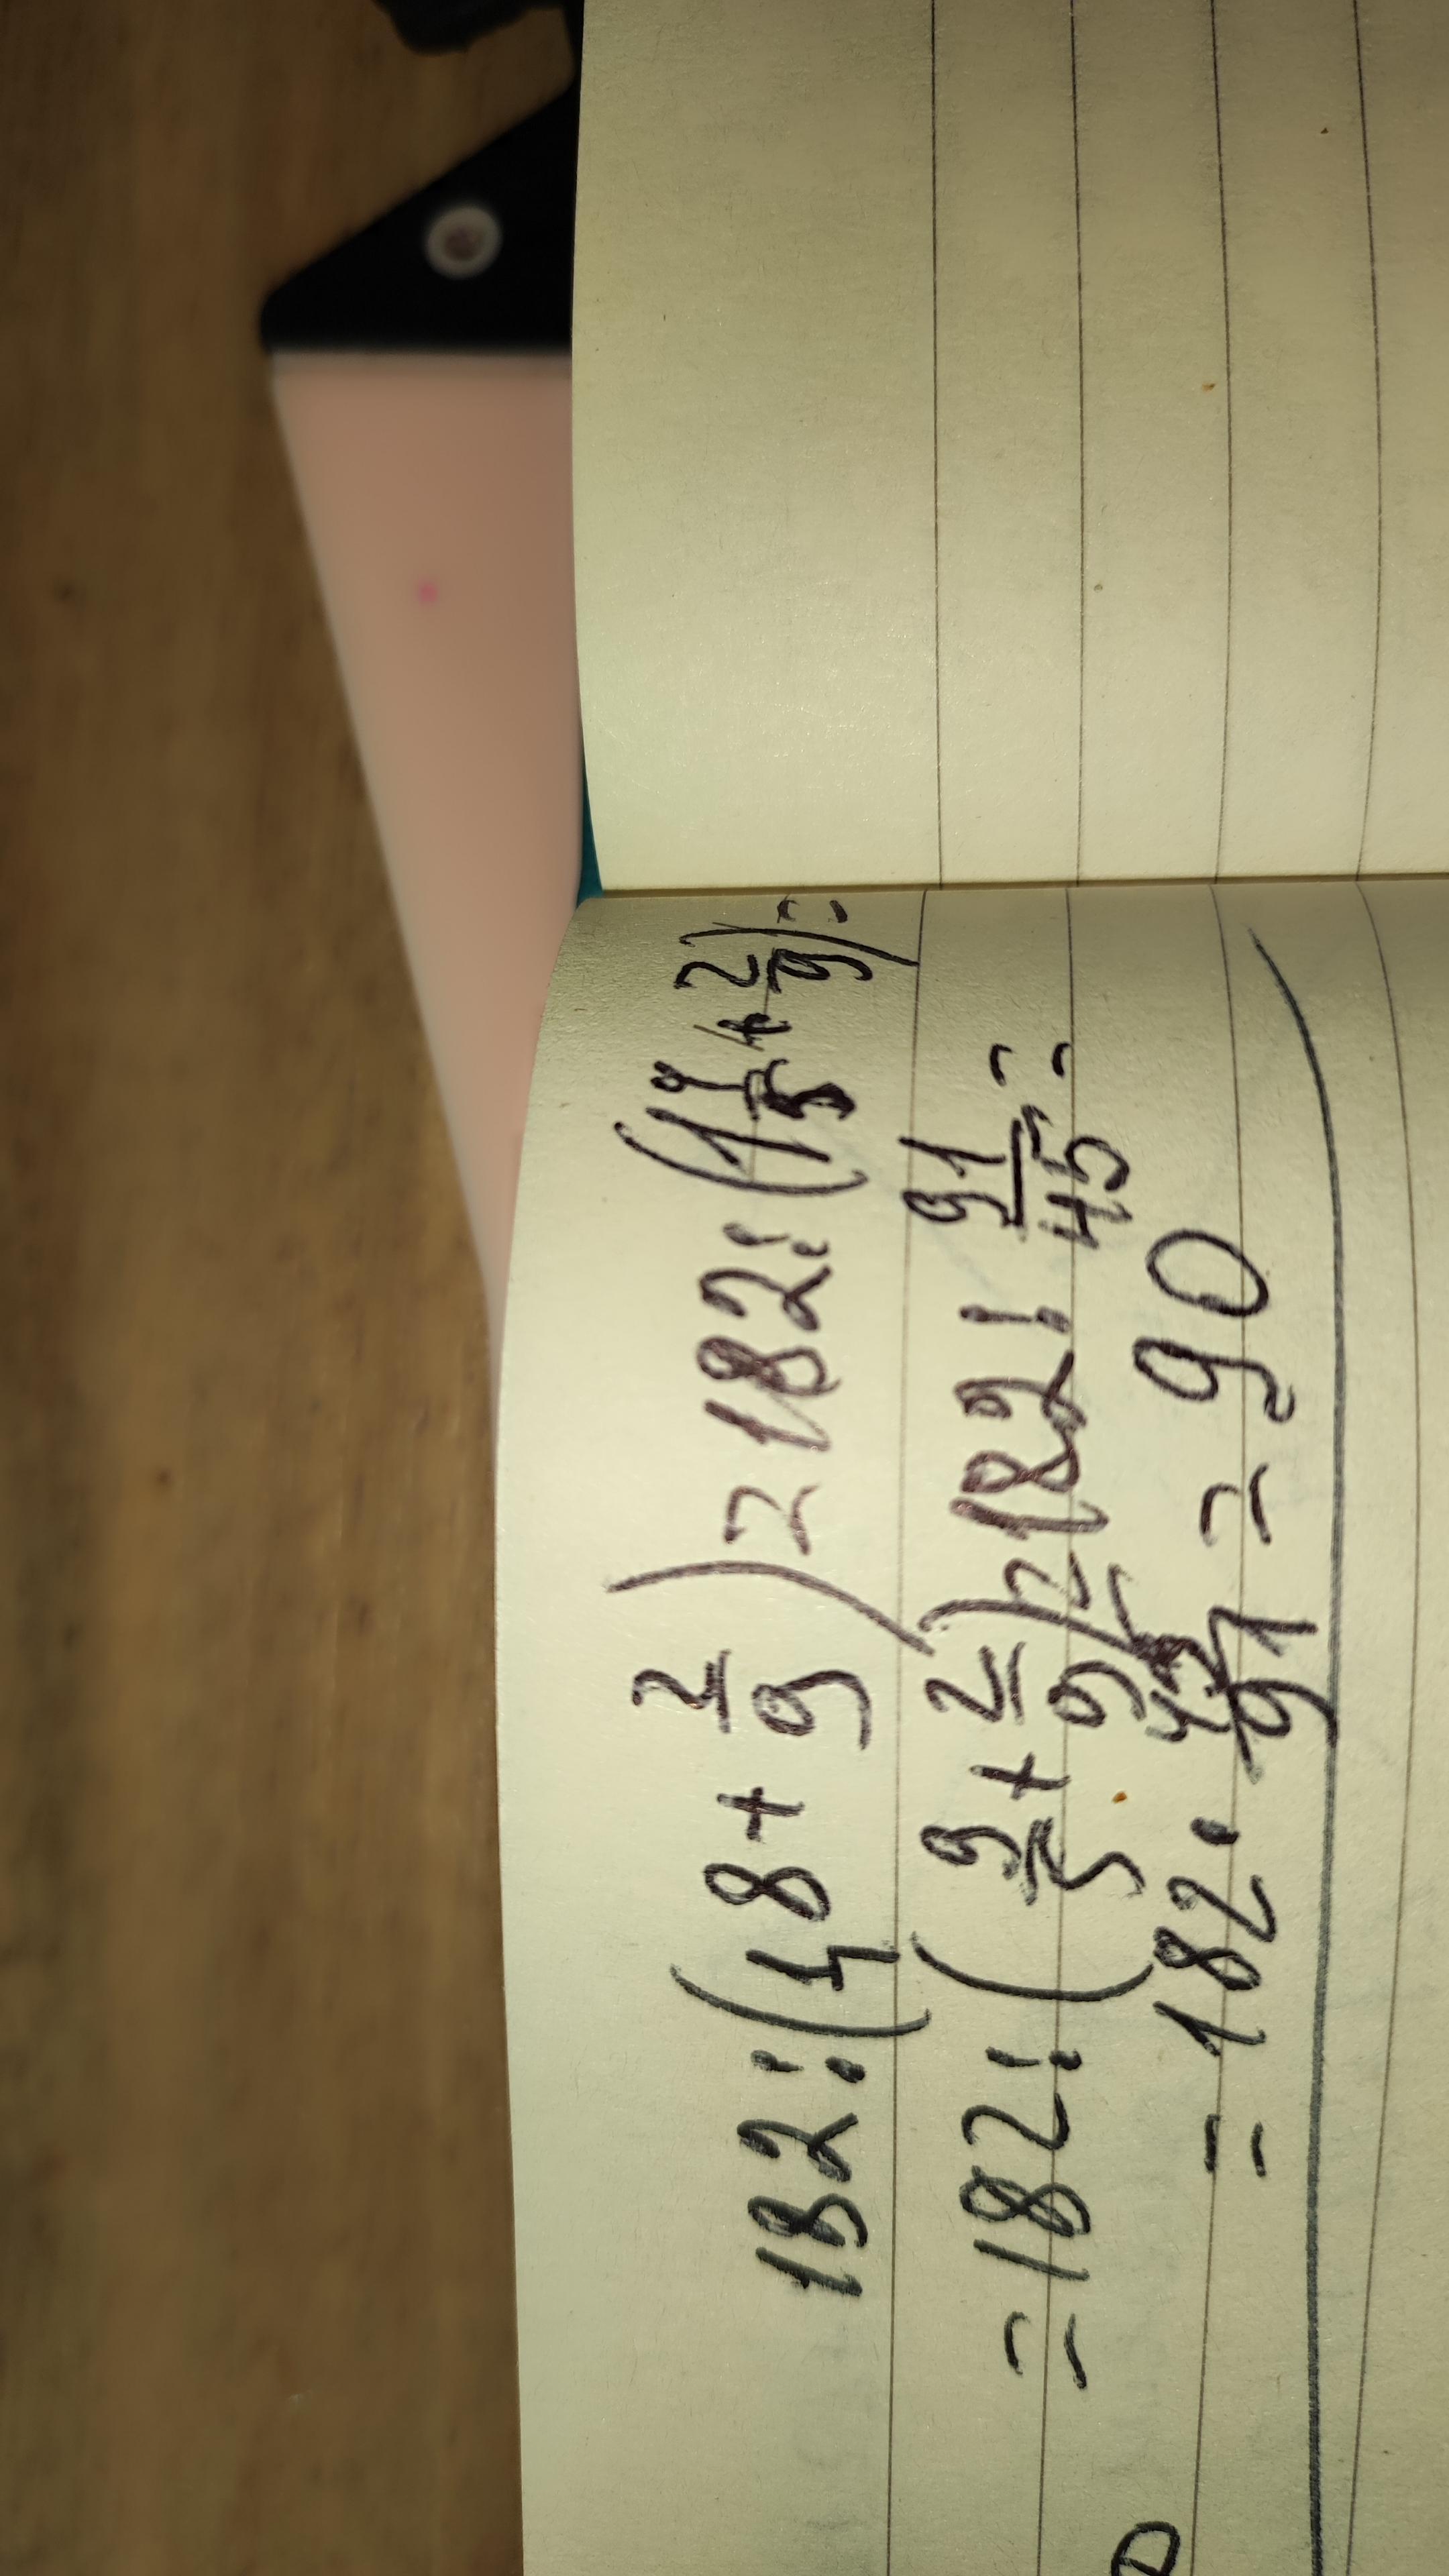 182:(1,8+2/9)=182:(1 4/5+2/9)=
=182:(9/5+2/9)=182:91/45=
=182·45/91=90